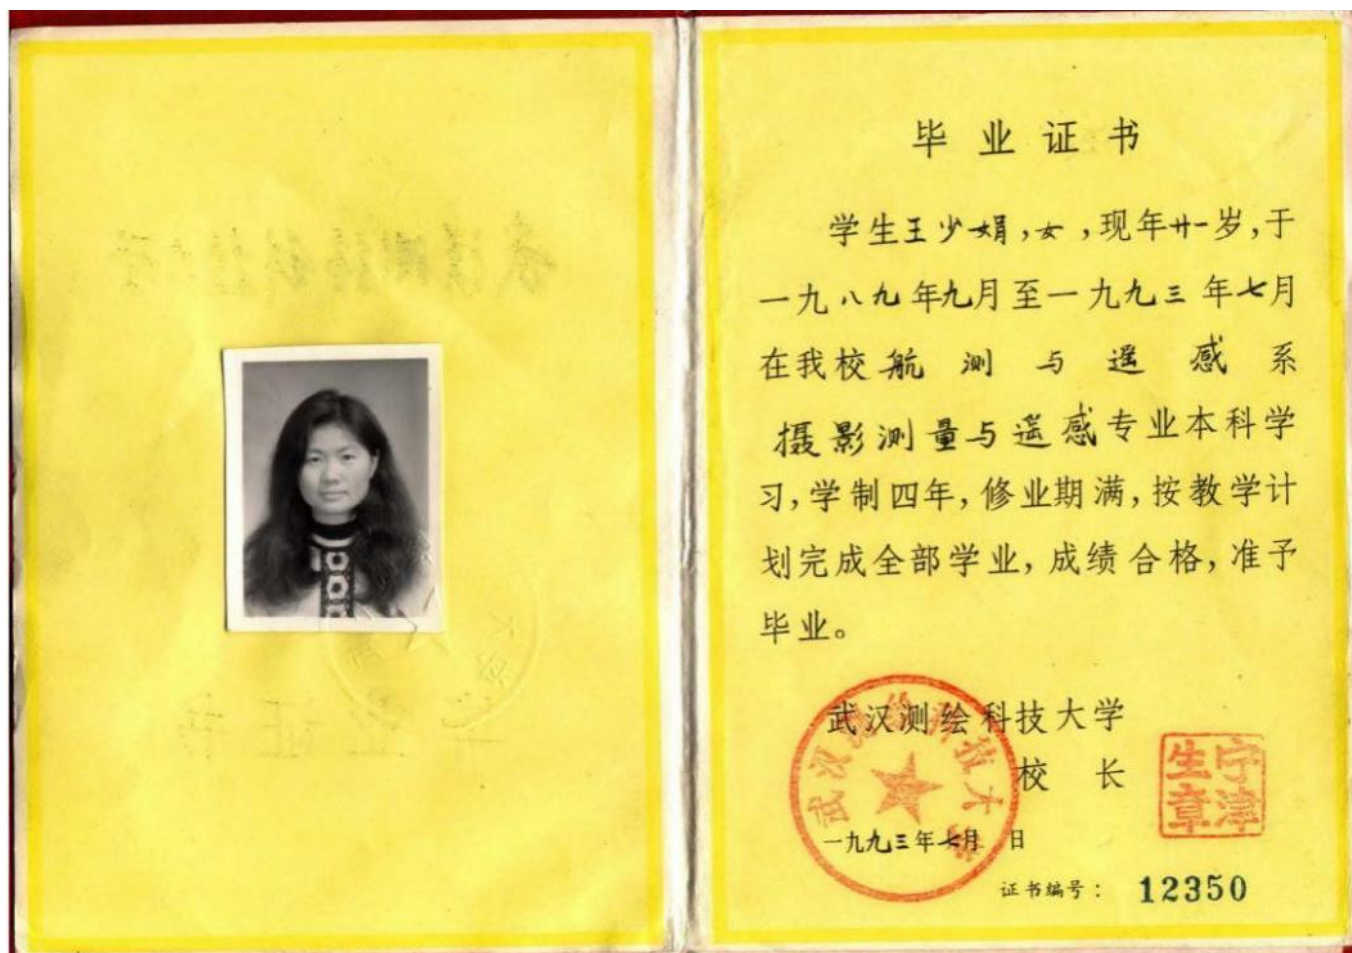 毕业证书
学生王少娟，女，现年廿一岁，于
一九八九年九月至一九九三年七月
在我校航测与遥感系
摄影测量与遥感专业本科学
习，学制四年，修业期满，按教学计
划完成全部学业，成绩合格，准予
毕业。
武汉测绘科技大学
校长
一九九三年七月 日
证书编号： 12350
武汉测绘科技大学
宁津
生章
毕业证书